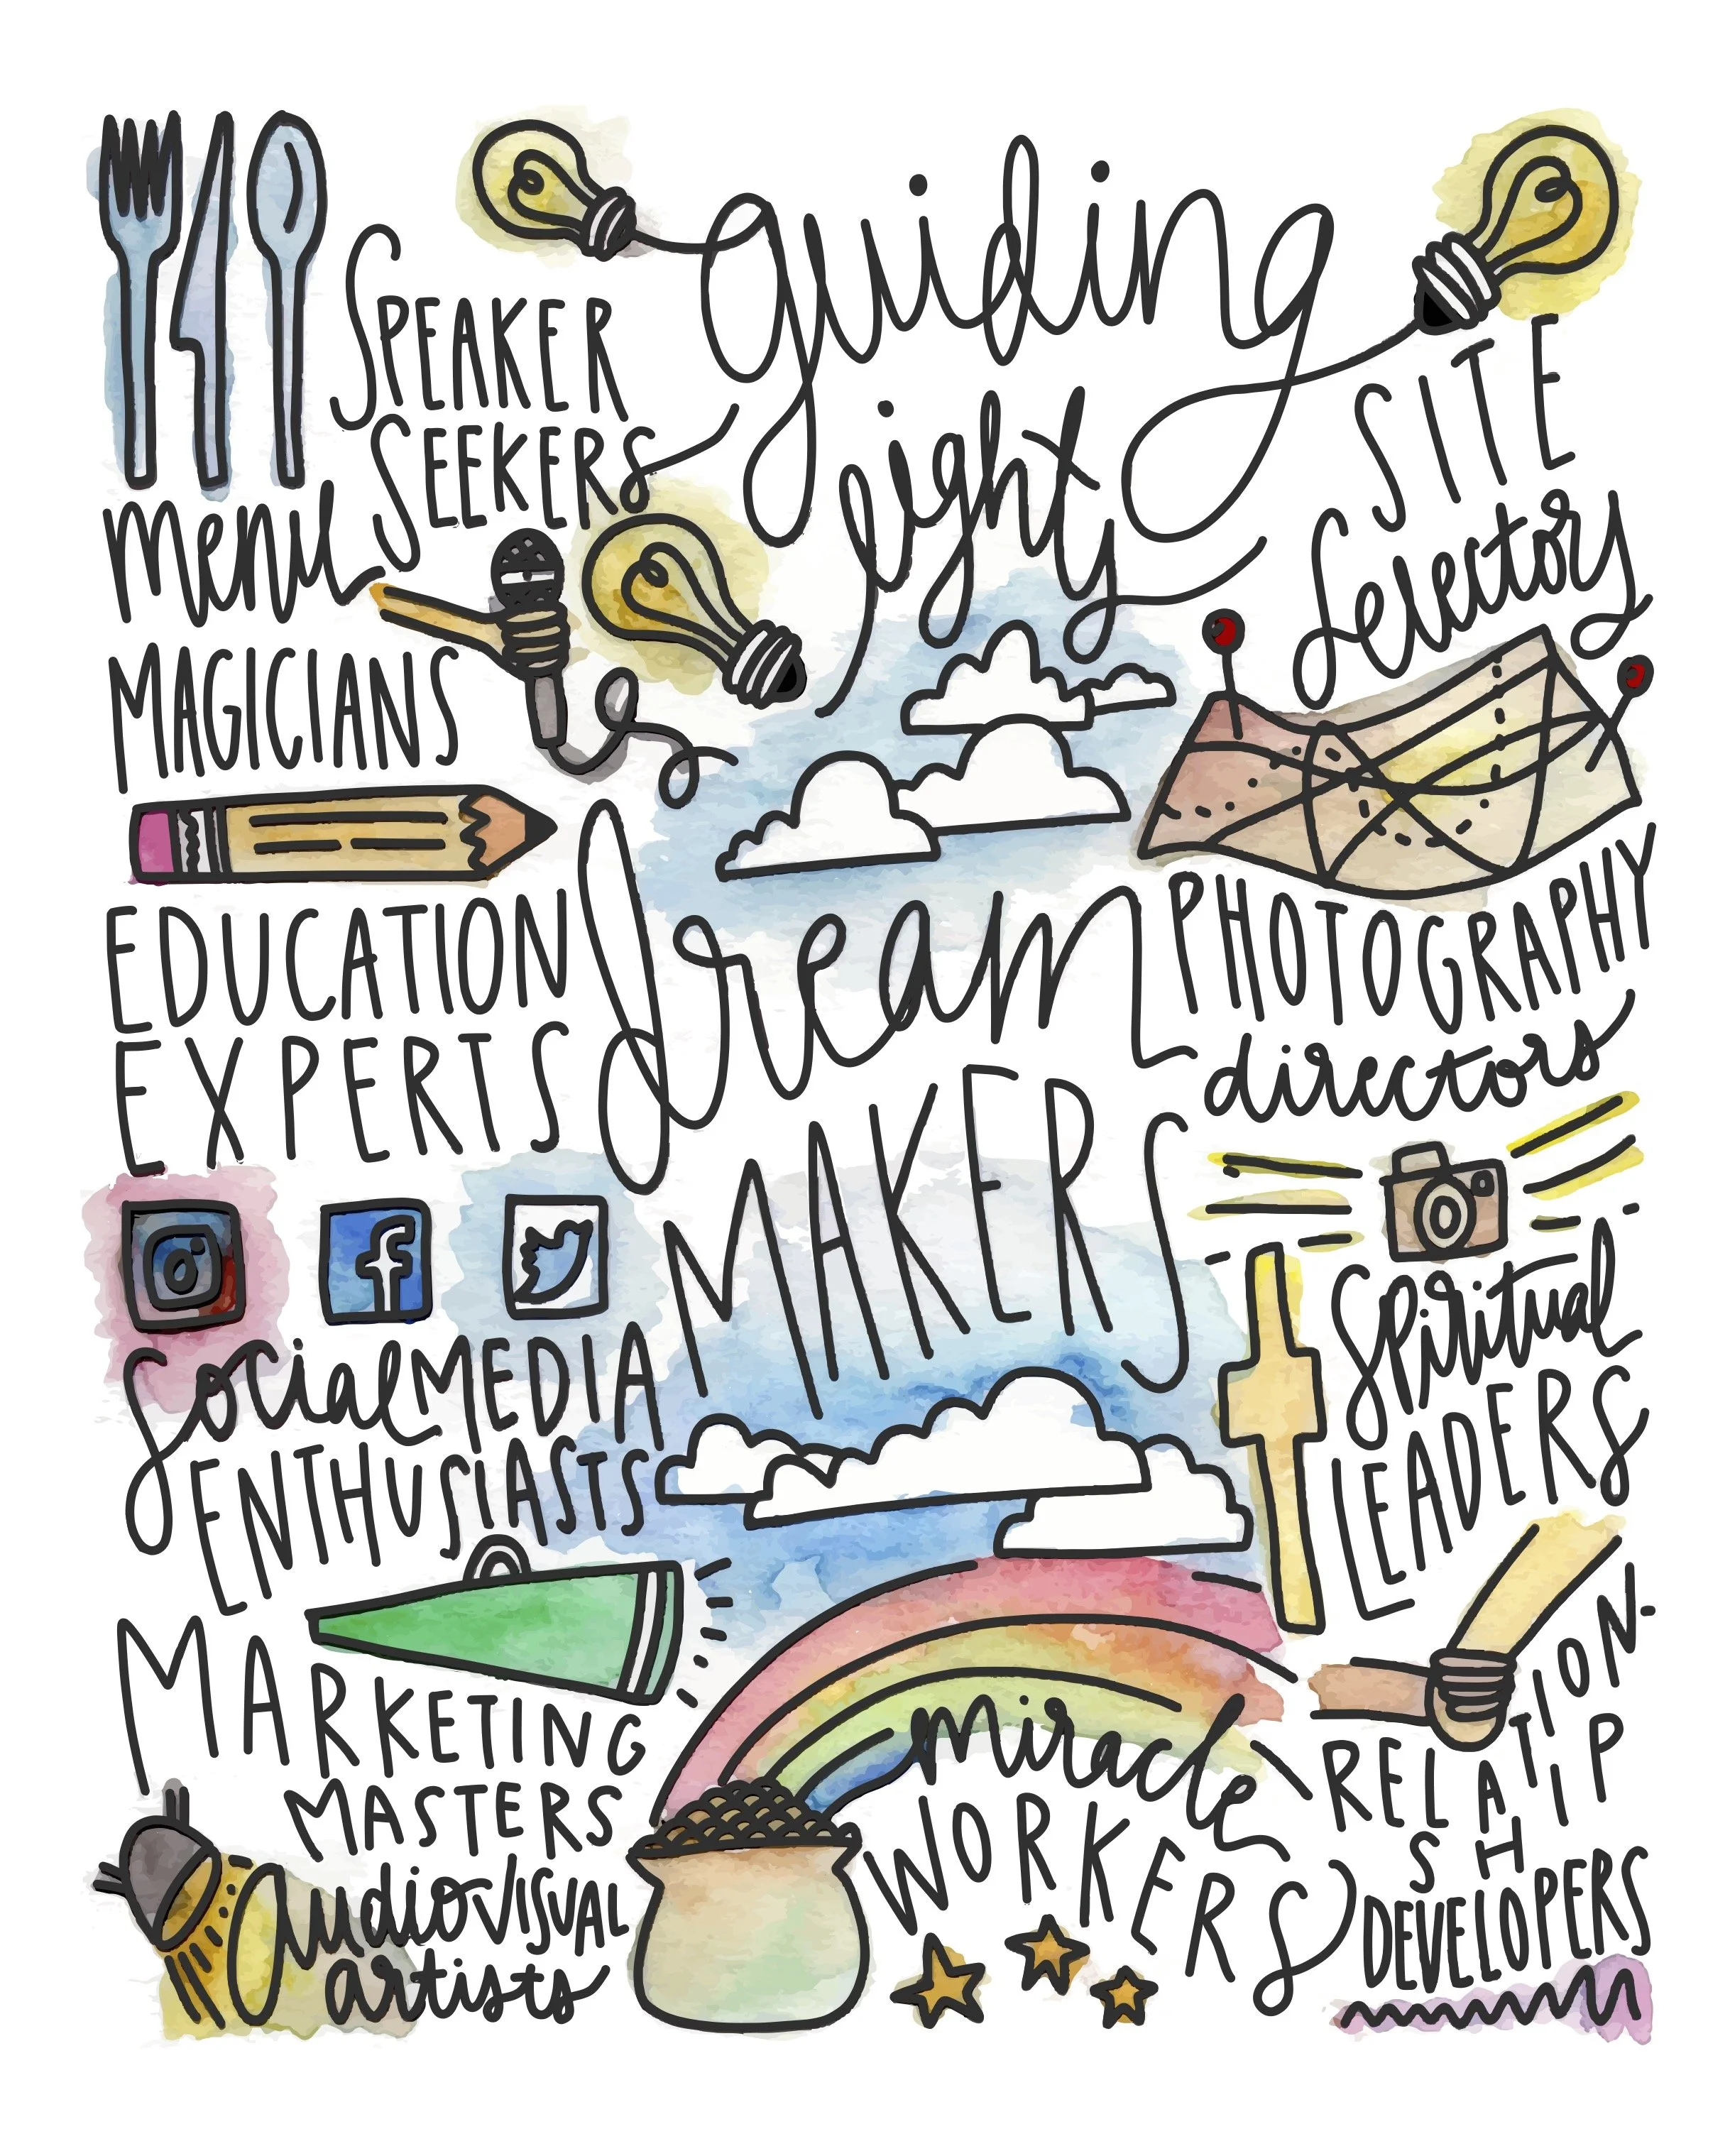 guiding
lights
SPEAKER
SEEKERS
menu
MAGICIANS
SITE
Selectors
EDUCATION
EXPERTS
dream
MAKERS
PHOTOGRAPHY
directors
Social MEDIA
ENTHUSIASTS
Spiritual
LEADERS
MARKETING
MASTERS
miracle
WORKERS
RELATION-
SHIP
DEVELOPERS
audioVISUAL
artists